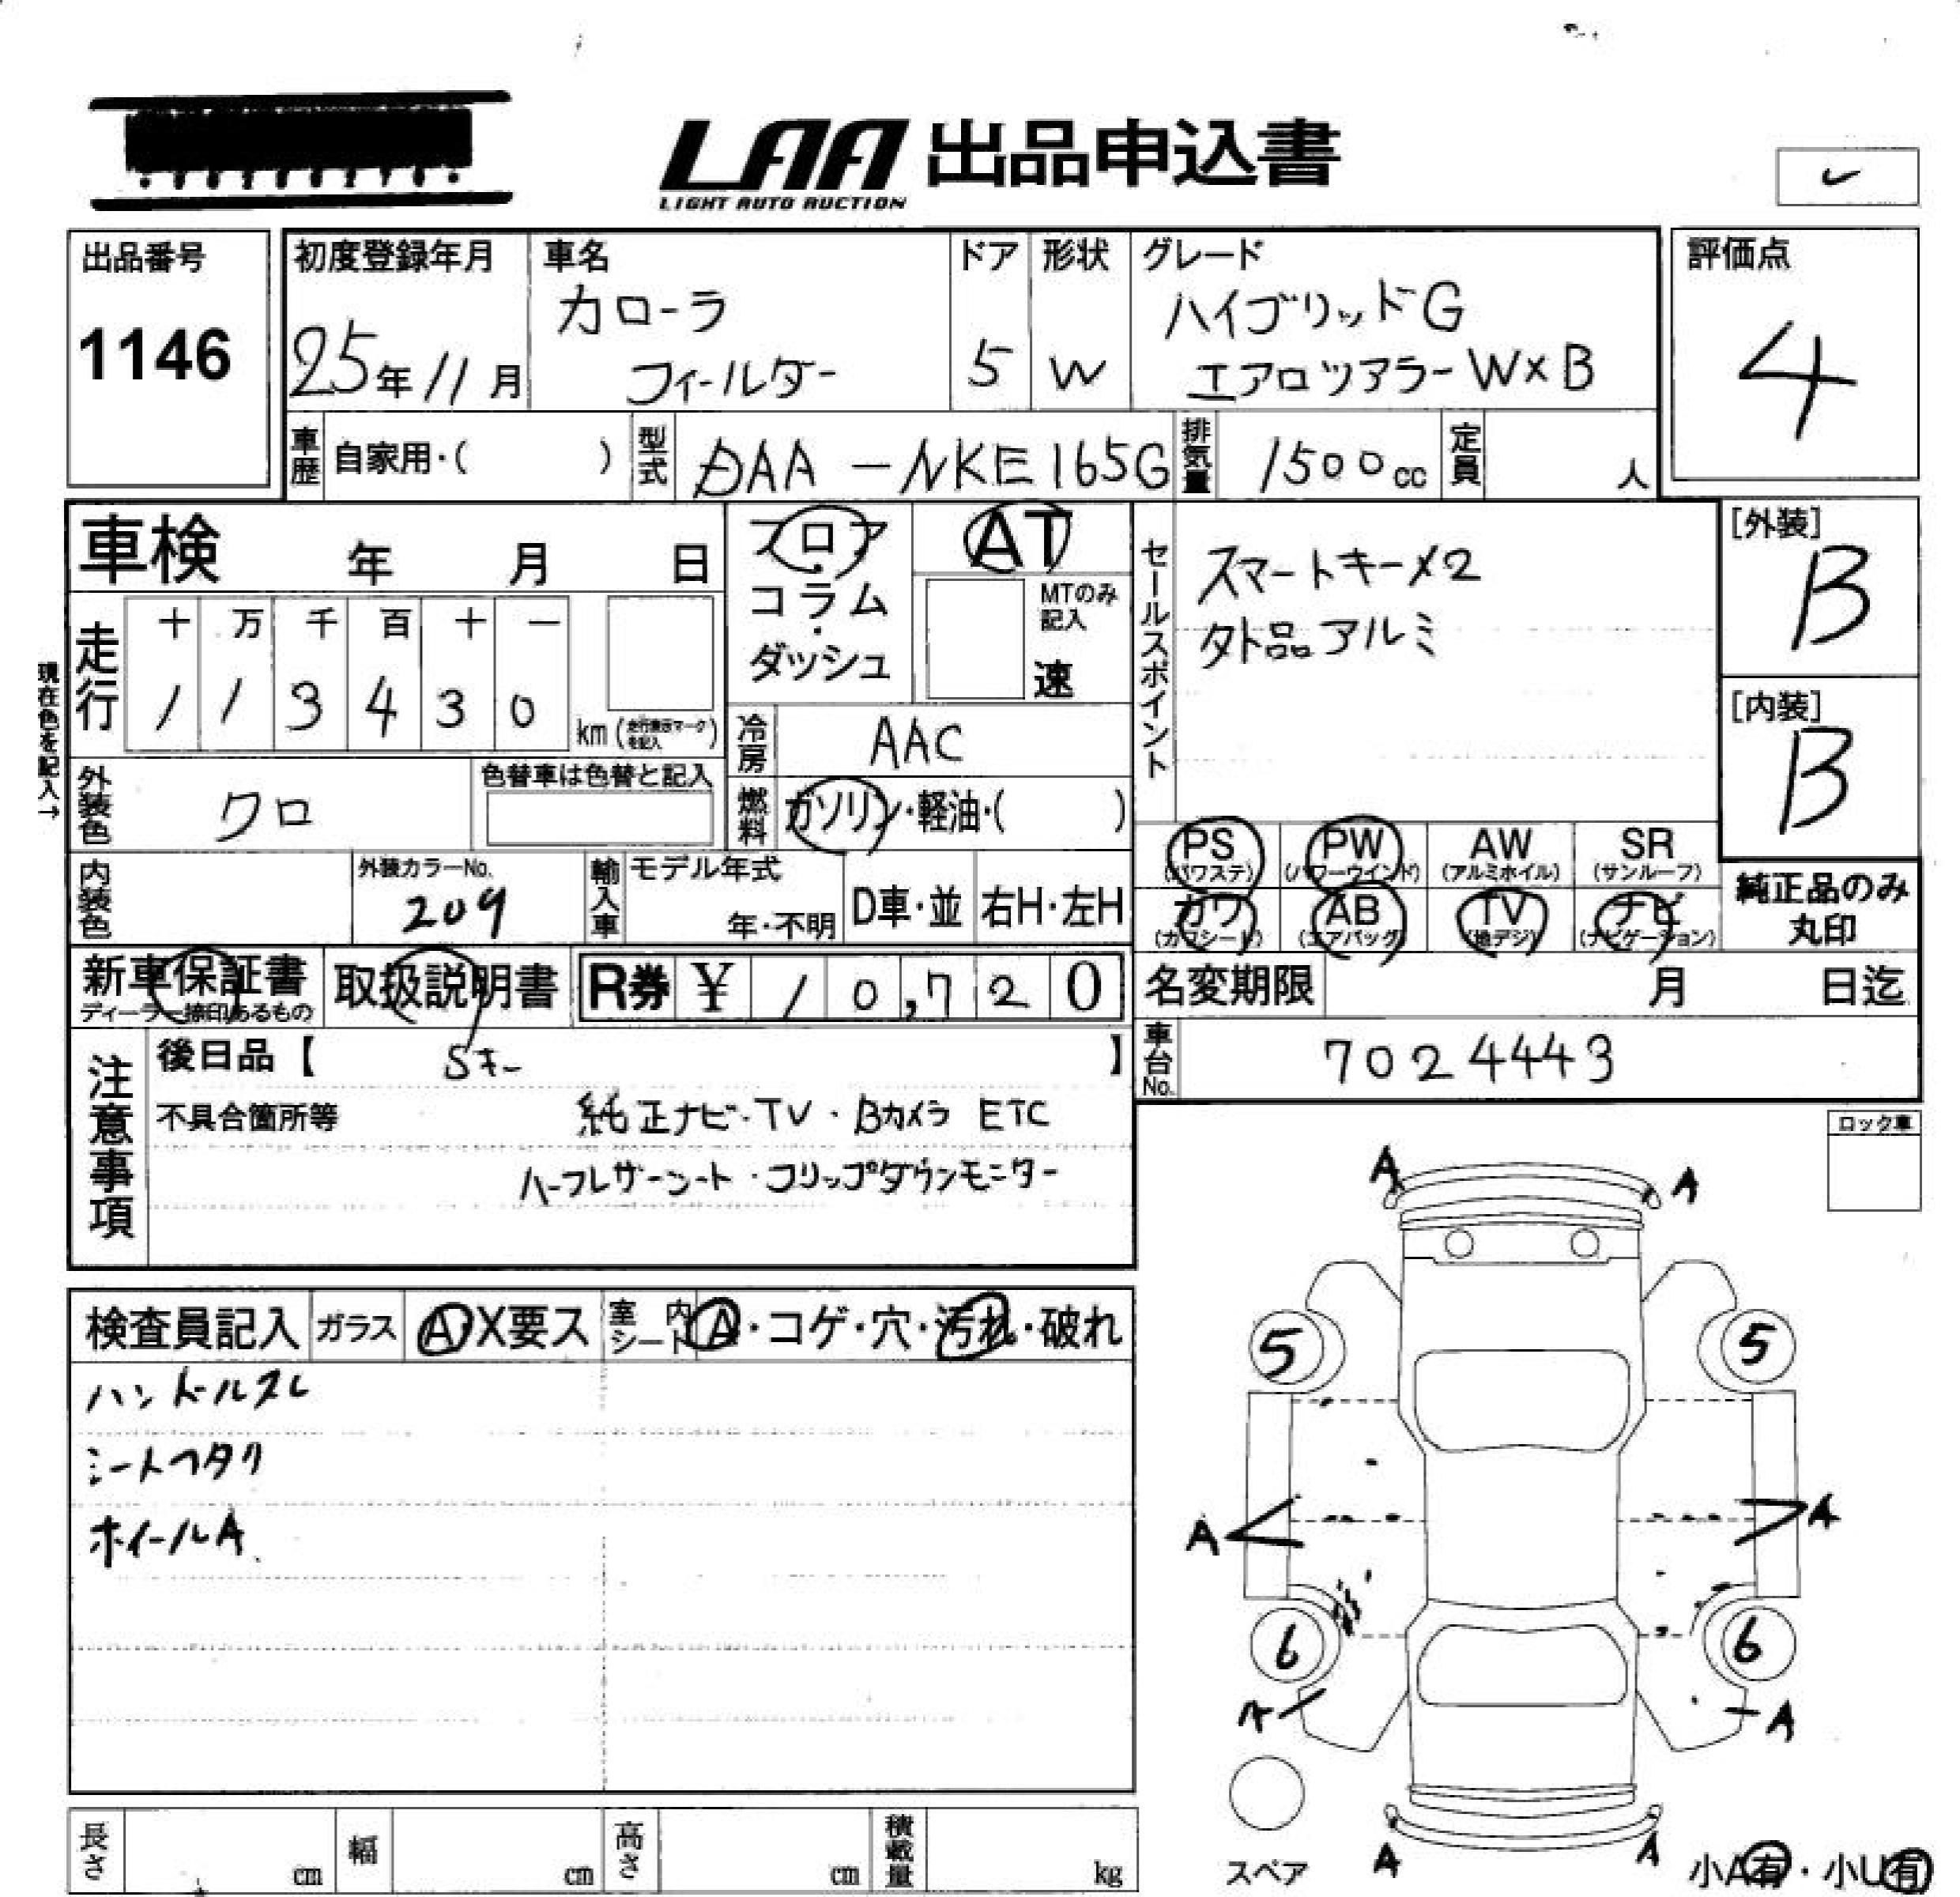 LAA 出品申込書
LIGHT AUTO AUCTION
出品番号
1146
初度登録年月
25年11月
車名
カローラ
フィールダー
ドア
5
形状
W
グレード
ハイブリッドG
エアロツアラーW×B
評価点
4
車歴 自家用・( )
型式 DAA-NKE165G
排気量 1500cc
定員 人
車検 年 月 日
フロア・コラム・ダッシュ
AT
MTのみ記入
速
セールスポイント
スマートキー×2
外品アルミ
[外装]
B
[内装]
B
現在色を記入→
走行
十 万 千 百 十 一
1 1 3 4 3 0
km(走行表示マークを記入)
冷房 AAC
外装色 クロ
色替車は色替と記入
燃料 ガソリン・軽油・( )
PS (パワステ)
PW (パワーウインド)
AW (アルミホイル)
SR (サンルーフ)
内装色
外装カラーNo.
209
輸入車
モデル年式
年・不明
D車・並
右H・左H
カワ (カワシート)
AB (エアバッグ)
TV (地デジ)
ナビ (ナビゲーション)
純正品のみ
丸印
新車保証書
ディーラー捺印あるもの
取扱説明書
R券 ¥10,720
名変期限 月 日迄
車台No. 7024443
注意事項
後日品【 Sキー 】
不具合箇所等
純正ナビ・TV・Bカメラ ETC
ハーフレザーシート・フリップダウンモニター
ロック車
検査員記入
ガラス A・X要ス
室内シート A・コゲ・穴・汚れ・破れ
ハンドルスレ
シートヘタリ
ホイールA
A A
5 5
A A
6 6
A A
A A
スペア
小A有・小U有
長さ cm
幅 cm
高さ cm
積載量 kg